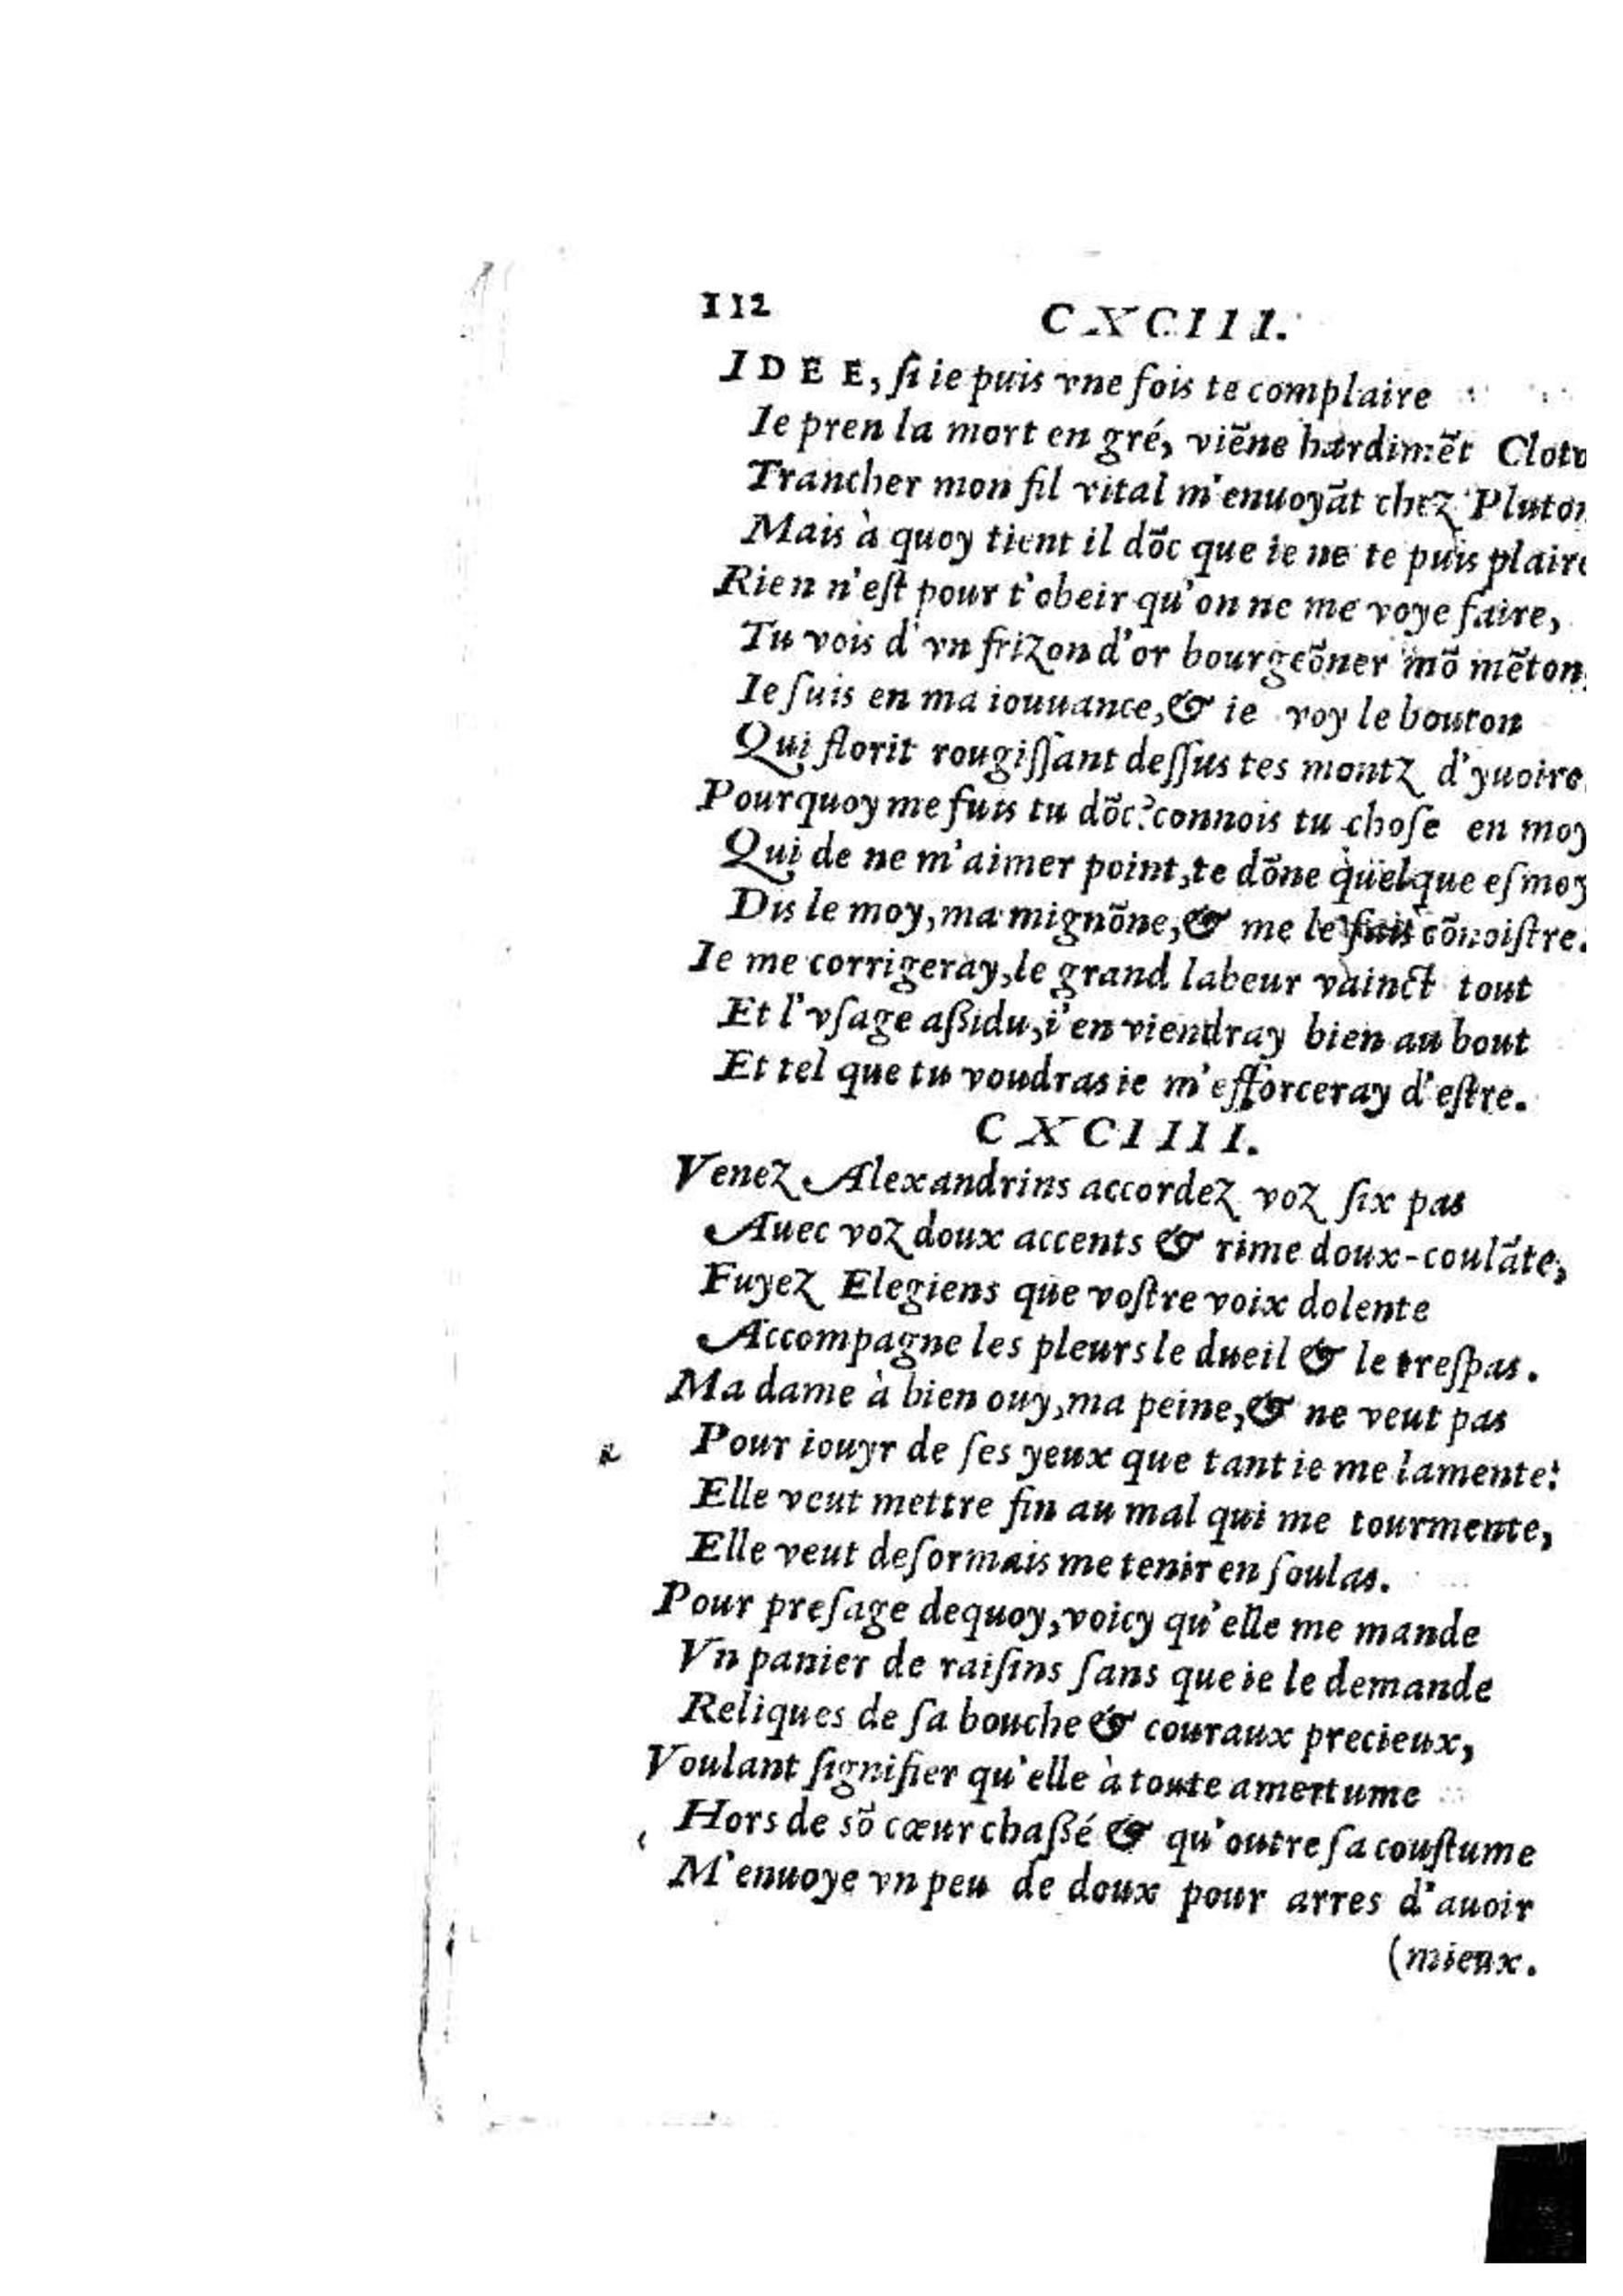 112
CXCIII.
IDEE, ſi ie puis vne fois te complaire
Ie pren la mort en gré, viẽne hardimẽt Cloto
Trancher mon fil vital m'enuoyãt chez Pluton
Mais à quoy tient il dõc que ie ne te puis plaire
Rien n'eſt pour t'obeir qu'on ne me voye faire,
Tu vois d'vn frizon d'or bourgeõner mõ mẽton,
Ie ſuis en ma iouuance, & ie voy le bouton
Qui florit rougiſſant deſſus tes montz d'yuoire.
Pourquoy me fuis tu dõc? connois tu choſe en moy
Qui de ne m'aimer point, te dõne quelque eſmoy
Dis le moy, ma mignõne, & me le fais cõnoiſtre.
Ie me corrigeray, le grand labeur vainct tout
Et l'vſage aßidu, i'en viendray bien au bout
Et tel que tu voudras ie m'efforceray d'eſtre.
CXCIIII.
Venez Alexandrins accordez voz ſix pas
Auec voz doux accents & rime doux-coulãte,
Fuyez Elegiens que voſtre voix dolente
Accompagne les pleurs le dueil & le treſpas.
Ma dame à bien ouy, ma peine, & ne veut pas
Pour iouyr de ſes yeux que tant ie me lamente:
Elle veut mettre fin au mal qui me tourmente,
Elle veut deſormais me tenir en ſoulas.
Pour preſage dequoy, voicy qu'elle me mande
Vn panier de raiſins ſans que ie le demande
Reliques de ſa bouche & couraux precieux,
Voulant ſignifier qu'elle à toute amertume
Hors de sõ cœur chaßé & qu'outre ſa couſtume
M'enuoye vn peu de doux pour arres d'auoir
(mieux.